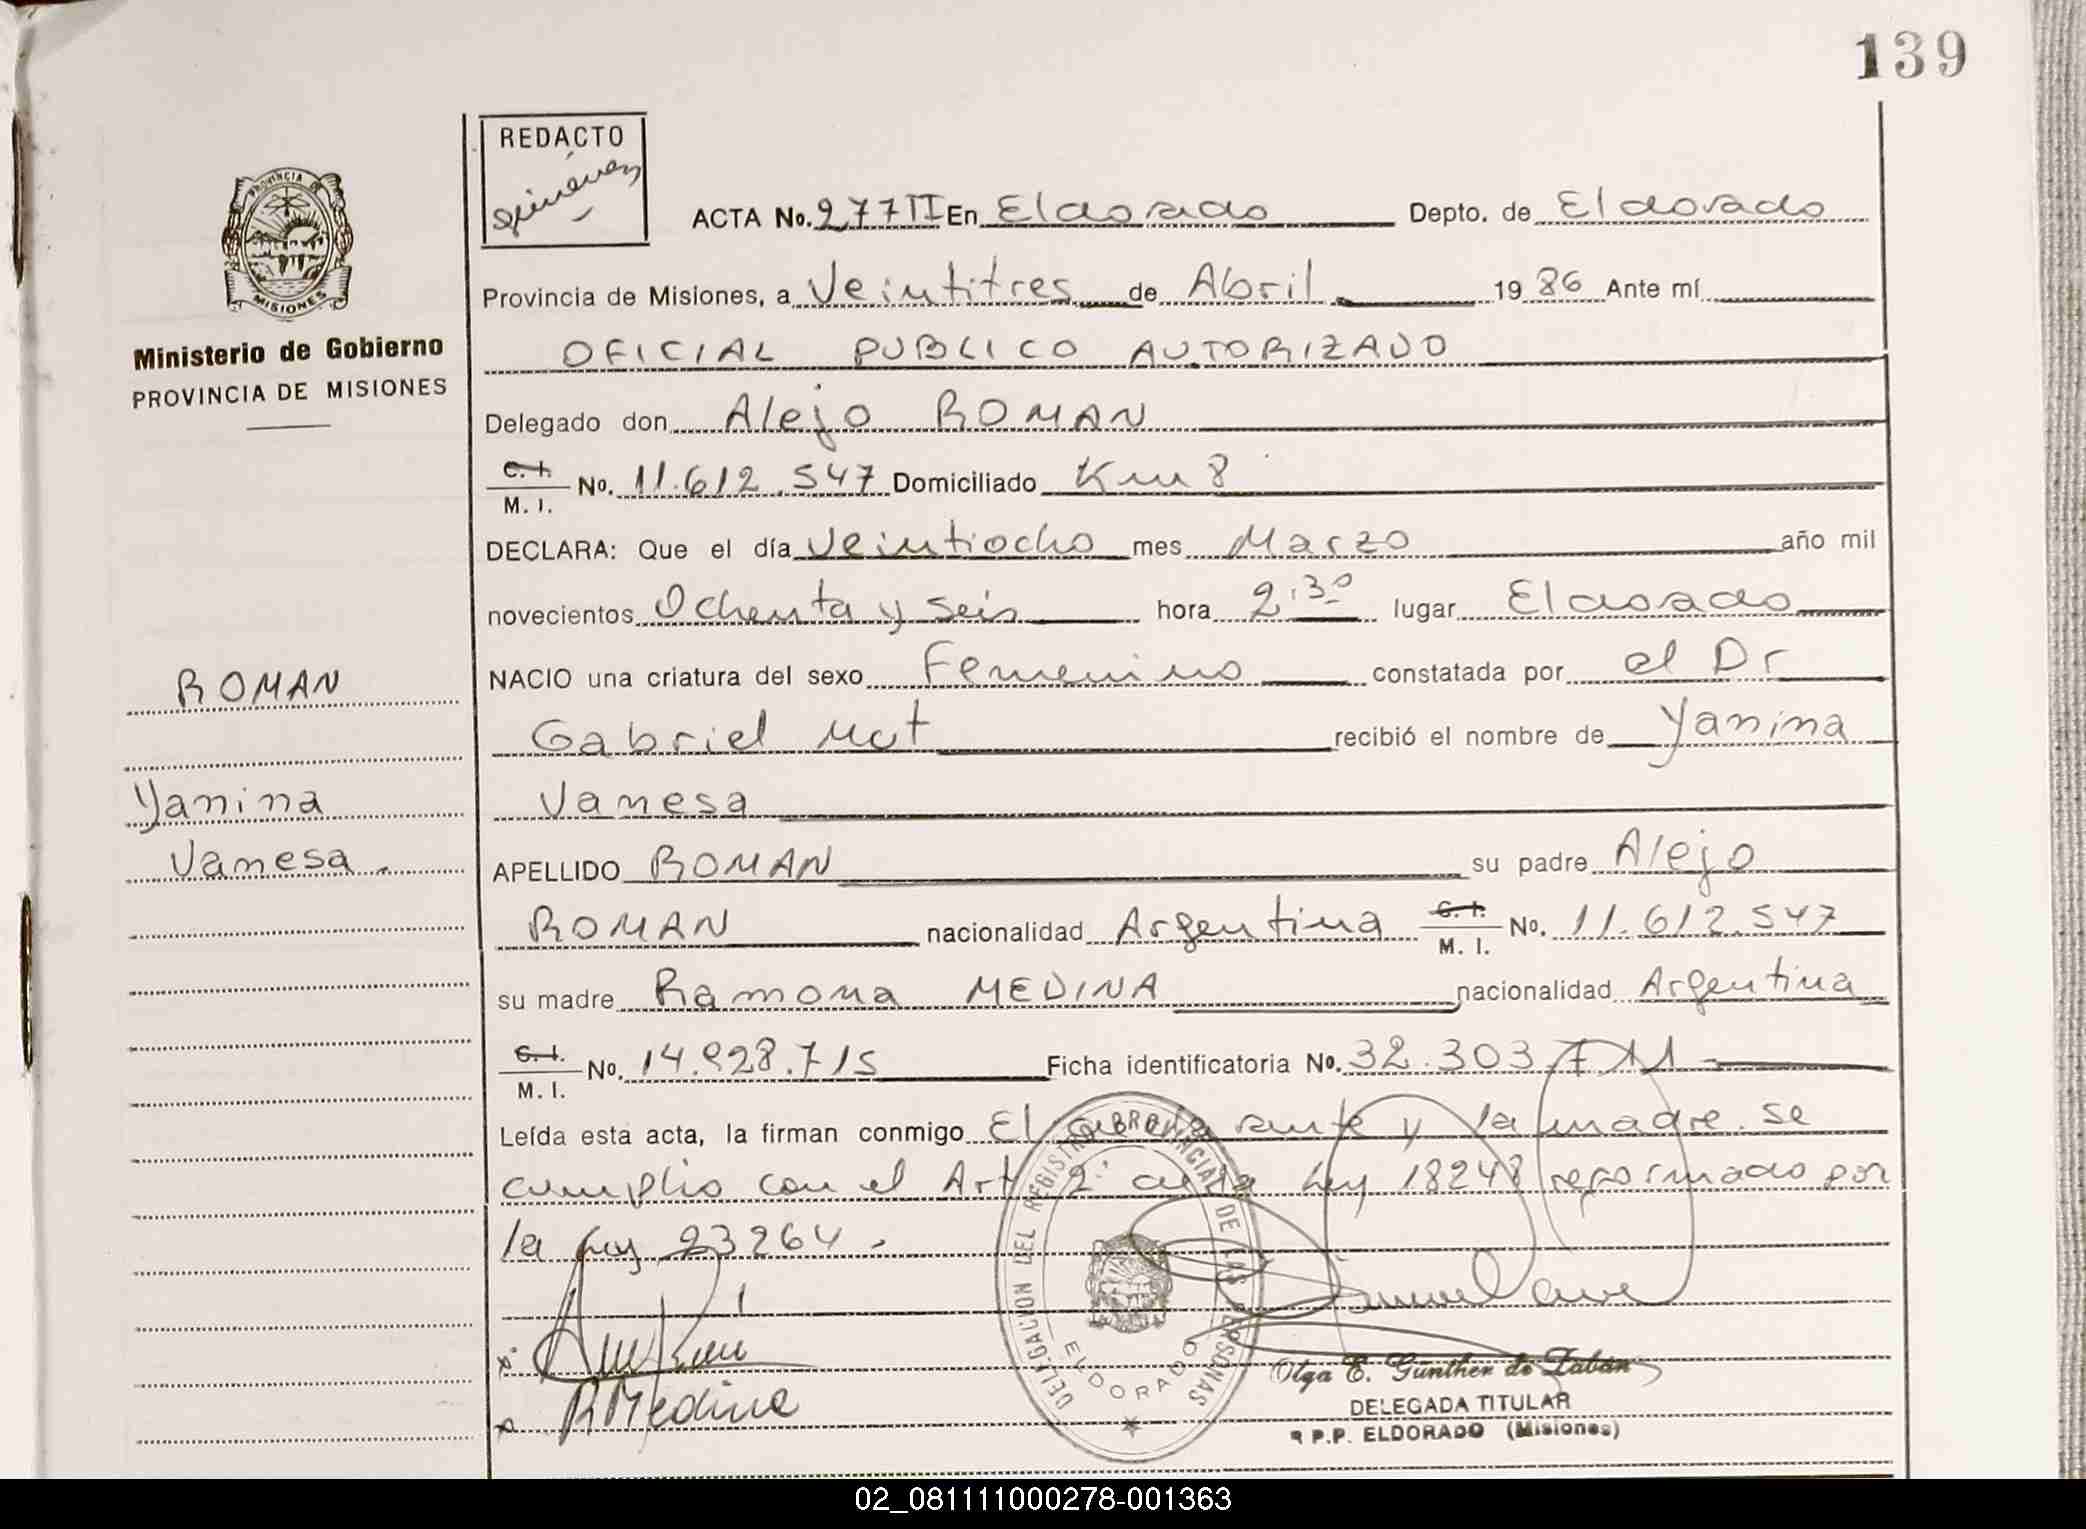 139
REDACTO
Giménez
ACTA No. 277 II En Eldorado Depto. de Eldorado
Provincia de Misiones, a Veintitres de Abril 1986 Ante mí
OFICIAL PUBLICO AUTORIZADO
Delegado don Alejo ROMAN
C. I. M. I. No. 11.612.547 Domiciliado Km 8
DECLARA: Que el día Veintiocho mes Marzo año mil
novecientos Ochenta y seis hora 2.30 lugar Eldorado
NACIO una criatura del sexo Femenino constatada por el Dr
Gabriel recibió el nombre de Yanina
Vanesa
APELLIDO ROMAN su padre Alejo
ROMAN nacionalidad Argentina C. I. M. I. No. 11.612.547
su madre Ramona MEDINA nacionalidad Argentina
C. I. M. I. No. 14.928.715 Ficha identificatoria No. 32.303.711
Leída esta acta, la firman conmigo El declarante y la madre. se
cumplio con el Art 2º de la Ley 18248 reformado por
la Ley 23264.
R Medina
PROVINCIA DE
MISIONES
Ministerio de Gobierno
PROVINCIA DE MISIONES
ROMAN
Yanina
Vanesa.
DELEGACION DEL REGISTRO PROVINCIAL DE LAS PERSONAS
ELDORADO
Olga E. Günther de Zabán
DELEGADA TITULAR
R P.P. ELDORADO (Misiones)
02_081111000278-001363